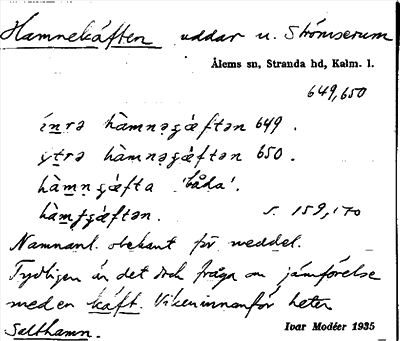 Hamnekäften uddar u. Strömserum
Ålems sn, Stranda hd, Kalm. l.
649,650
ìnrə hàmnəgäftən 649.
ytrə hàmnəgäftən 650.
hàmngäfta 'båda'.
hàmgäftən. s. 159, 170
Namnanl. obekant för meddel.
Tydligen är det dock fråga om jämförelse
med en käft. Viken innanför heter
Salthamn. Ivar Modéer 1935